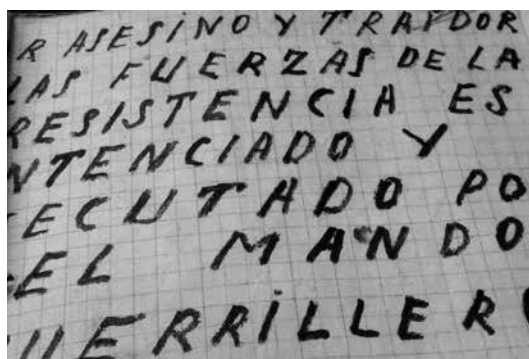 R ASESINO Y TRAYDOR
LAS FUERZAS DE LA
RESISTENCIA ES
NTENCIADO Y
ECUTADO PO
EL MANDO
UERRILLER